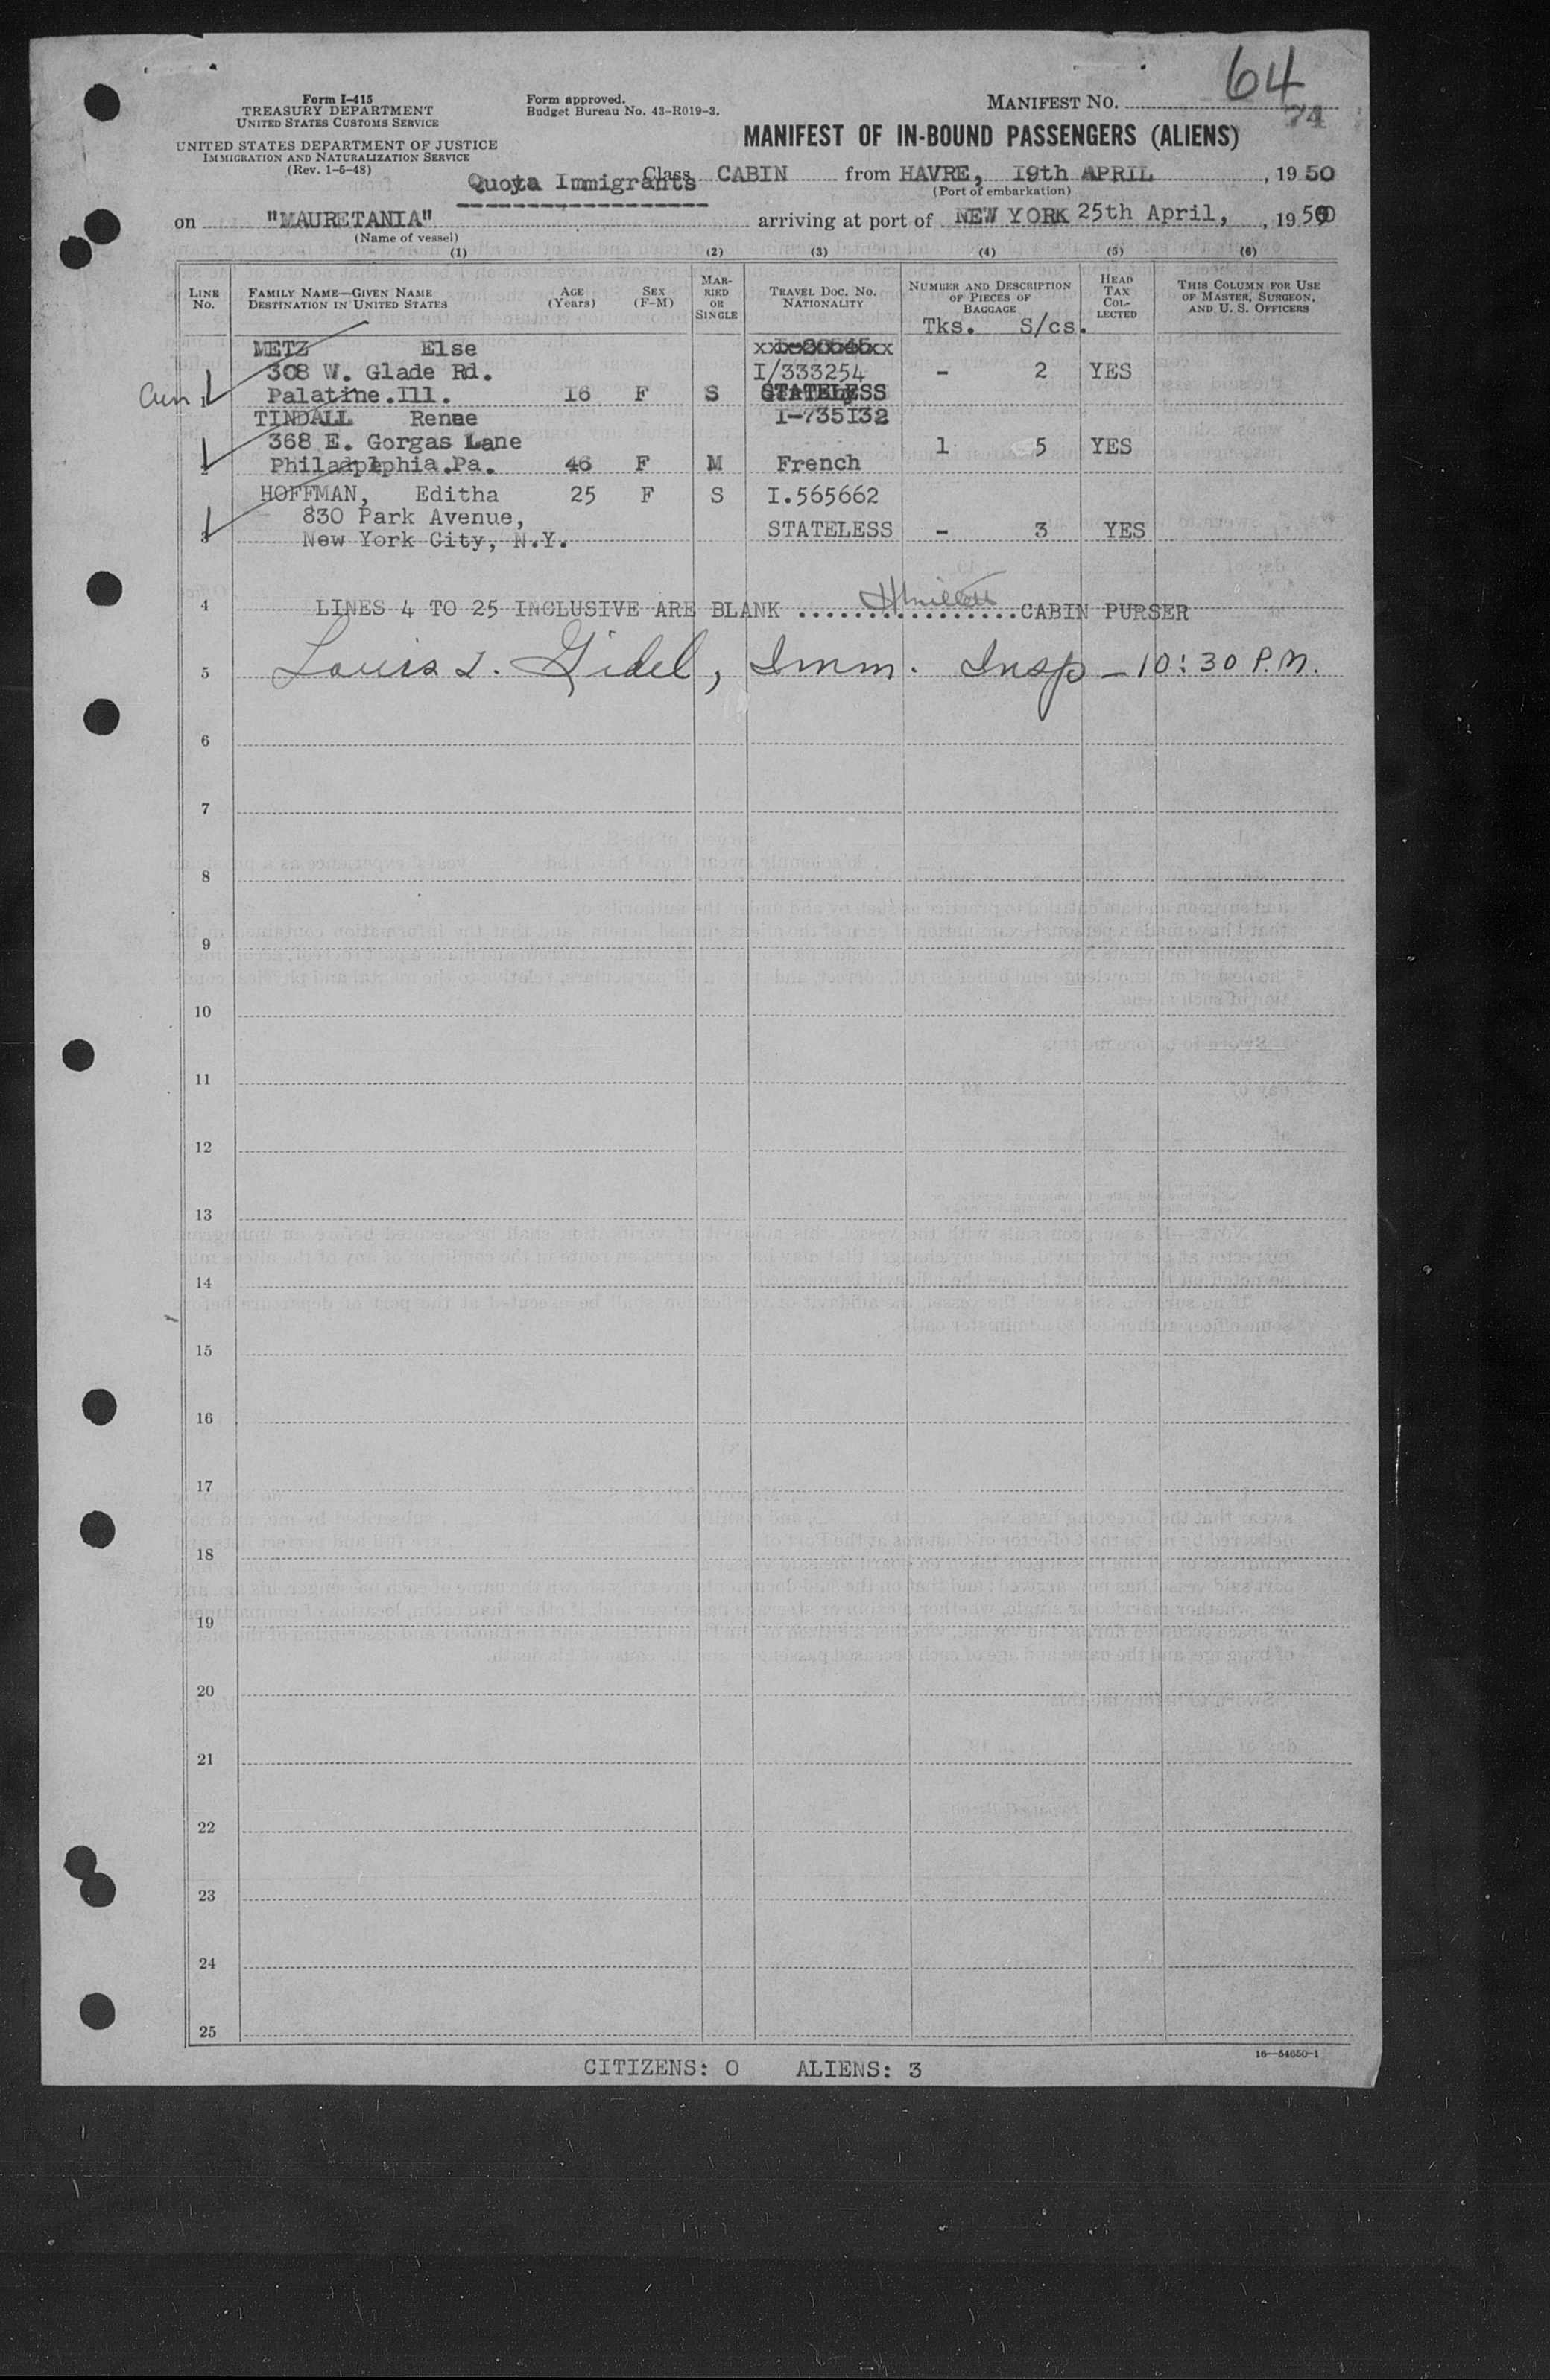 64
74
Form I-415
TREASURY DEPARTMENT
UNITED STATES CUSTOMS SERVICE
UNITED STATES DEPARTMENT OF JUSTICE
IMMIGRATION AND NATURALIZATION SERVICE
(Rev. 1-5-48)
Form approved.
Budget Bureau No. 43-R019-3.
MANIFEST NO.
MANIFEST OF IN-BOUND PASSENGERS (ALIENS)
Quota Immigrants Class CABIN from HAVRE, 19th APRIL, 1950
(Port of embarkation)
on "MAURETANIA" arriving at port of NEW YORK 25th April, , 1950
(Name of vessel)
(1) (2) (3) (4) (5) (6)
LINE No. FAMILY NAME—GIVEN NAME DESTINATION IN UNITED STATES AGE (Years) SEX (F-M) MARRIED OR SINGLE TRAVEL DOC. NO. NATIONALITY NUMBER AND DESCRIPTION OF PIECES OF BAGGAGE HEAD TAX COLLECTED THIS COLUMN FOR USE OF MASTER, SURGEON, AND U. S. OFFICERS
Tks. S/cs.
METZ Else
308 W. Glade Rd. I/333254 - 2 YES
1 Palatine.Ill. 16 F S STATELESS
TINDALL Renae I-735132
368 E. Gorgas Lane 1 5 YES
2 Philadplphia.Pa. 46 F M French
HOFFMAN, Editha 25 F S I.565662
830 Park Avenue,
3 New York City, N.Y. STATELESS - 3 YES
4 LINES 4 TO 25 INCLUSIVE ARE BLANK ................CABIN PURSER
5 Louis L. Gidel, Imm. Insp - 10:30 P.M.
6
7
8
9
10
11
12
13
14
15
16
17
18
19
20
21
22
23
24
25
16—54650-1
CITIZENS: 0 ALIENS: 3